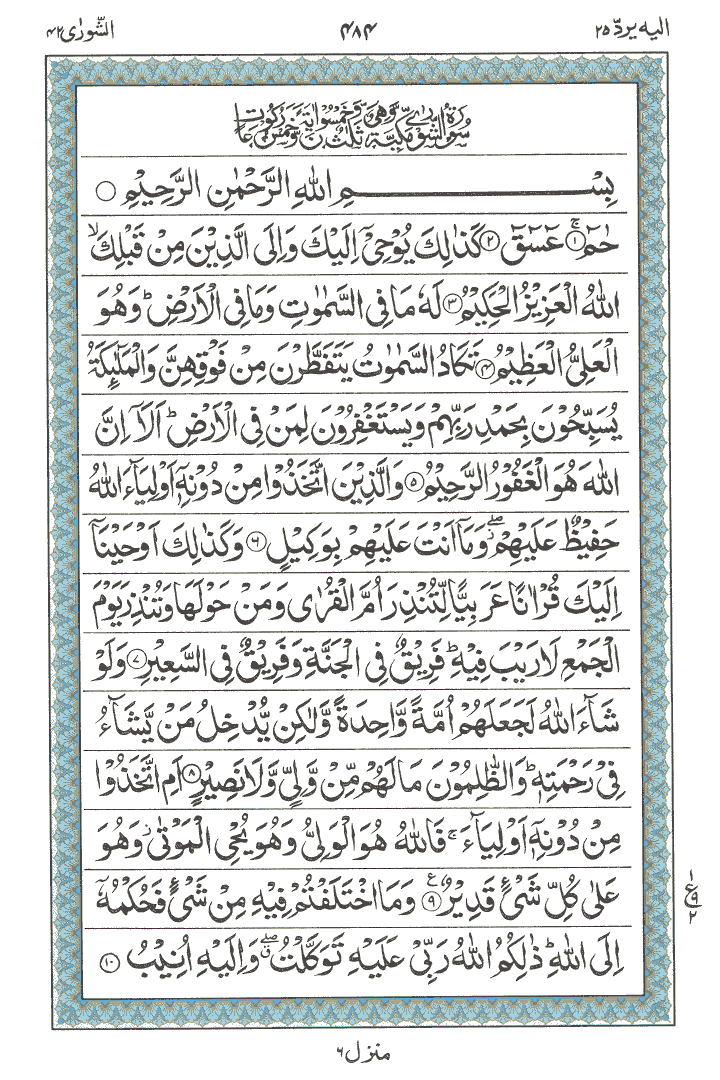 الشورٰی ۴۲
۴۸۴
الیه یردّ ۲۵
سُوْرَةُ الشُّوْرٰى مَكِّيَّةٌ وَّهِىَ ثَلٰثٌ وَّخَمْسُوْنَ اٰيَةً وَّخَمْسُ رُكُوْعَاتٍ
بِسْمِ اللهِ الرَّحْمٰنِ الرَّحِيْمِ ○
حٰمٓ ۚ﴿۱﴾ عٓسٓقٓ ﴿۲﴾ كَذٰلِكَ يُوْحِىْٓ اِلَيْكَ وَاِلَى الَّذِيْنَ مِنْ قَبْلِكَ ۙ
اللهُ الْعَزِيْزُ الْحَكِيْمُ ﴿۳﴾ لَهٗ مَا فِى السَّمٰوٰتِ وَمَا فِى الْاَرْضِ ؕ وَهُوَ
الْعَلِىُّ الْعَظِيْمُ ﴿۴﴾ تَكَادُ السَّمٰوٰتُ يَتَفَطَّرْنَ مِنْ فَوْقِهِنَّ وَالْمَلٰٓئِكَةُ
يُسَبِّحُوْنَ بِحَمْدِ رَبِّهِمْ وَيَسْتَغْفِرُوْنَ لِمَنْ فِى الْاَرْضِ ؕ اَلَاۤ اِنَّ
اللهَ هُوَ الْغَفُوْرُ الرَّحِيْمُ ﴿۵﴾ وَالَّذِيْنَ اتَّخَذُوْا مِنْ دُوْنِهٖۤ اَوْلِيَآءَ اللهُ
حَفِيْظٌ عَلَيْهِمْ ۖ وَمَاۤ اَنْتَ عَلَيْهِمْ بِوَكِيْلٍ ﴿۶﴾ وَكَذٰلِكَ اَوْحَيْنَاۤ
اِلَيْكَ قُرْاٰنًا عَرَبِيًّا لِّتُنْذِرَ اُمَّ الْقُرٰى وَمَنْ حَوْلَهَا وَتُنْذِرَ يَوْمَ
الْجَمْعِ لَا رَيْبَ فِيْهِ ؕ فَرِيْقٌ فِى الْجَنَّةِ وَفَرِيْقٌ فِى السَّعِيْرِ ﴿۷﴾ وَلَوْ
شَآءَ اللهُ لَجَعَلَهُمْ اُمَّةً وَّاحِدَةً وَّلٰكِنْ يُّدْخِلُ مَنْ يَّشَآءُ
فِىْ رَحْمَتِهٖ ؕ وَالظّٰلِمُوْنَ مَا لَهُمْ مِّنْ وَّلِىٍّ وَّلَا نَصِيْرٍ ﴿۸﴾ اَمِ اتَّخَذُوْا
مِنْ دُوْنِهٖۤ اَوْلِيَآءَ ۚ فَاللهُ هُوَ الْوَلِىُّ وَهُوَ يُحْىِ الْمَوْتٰى ۫ وَهُوَ
عَلٰى كُلِّ شَىْءٍ قَدِيْرٌ ﴿۹﴾ ع وَمَا اخْتَلَفْتُمْ فِيْهِ مِنْ شَىْءٍ فَحُكْمُهٗۤ
اِلَى اللهِ ؕ ذٰلِكُمُ اللهُ رَبِّىْ عَلَيْهِ تَوَكَّلْتُ ۖ وَاِلَيْهِ اُنِيْبُ ﴿۱۰﴾
۱
ع ۹
۲
منزل ۶